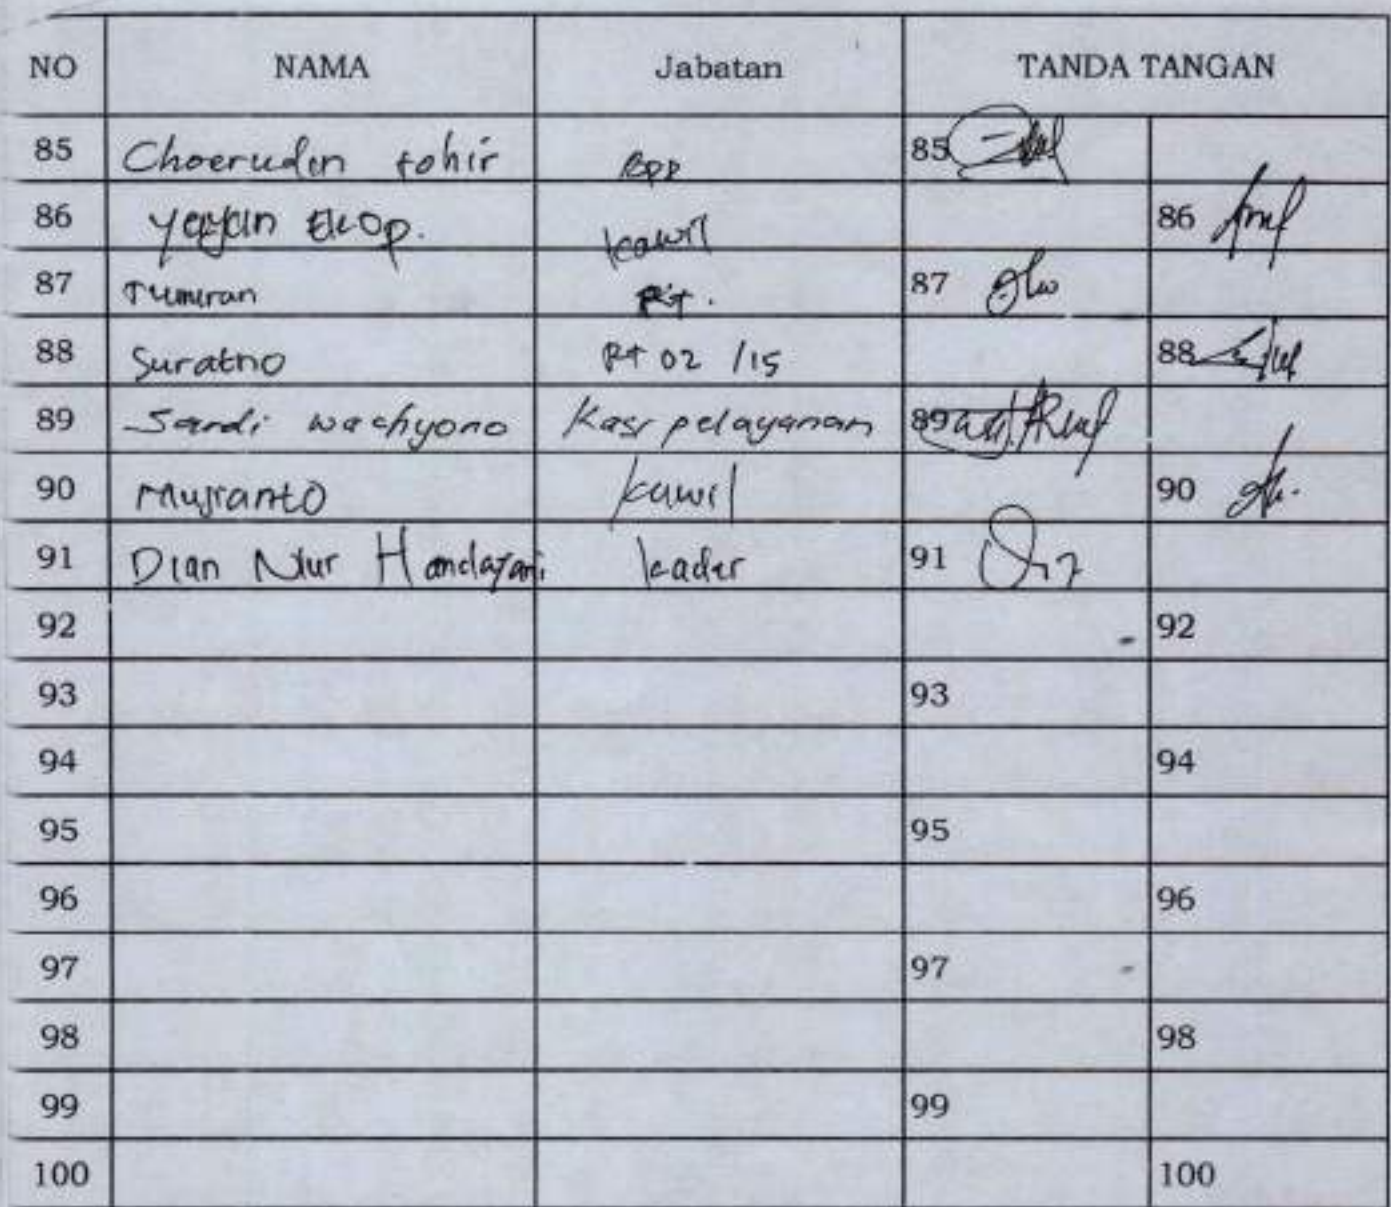 NO NAMA Jabatan TANDA TANGAN
85 Choerudin tohir BPP 85
86 yayan Eko p. kawil 86
87 Tumiran RT. 87
88 Suratno RT 02 /15 88
89 Sardi wachyono Kasi pelayanan 89
90 Mujianto kawil 90
91 Dian Nur Handayani kader 91
92 92
93 93
94 94
95 95
96 96
97 97
98 98
99 99
100 100